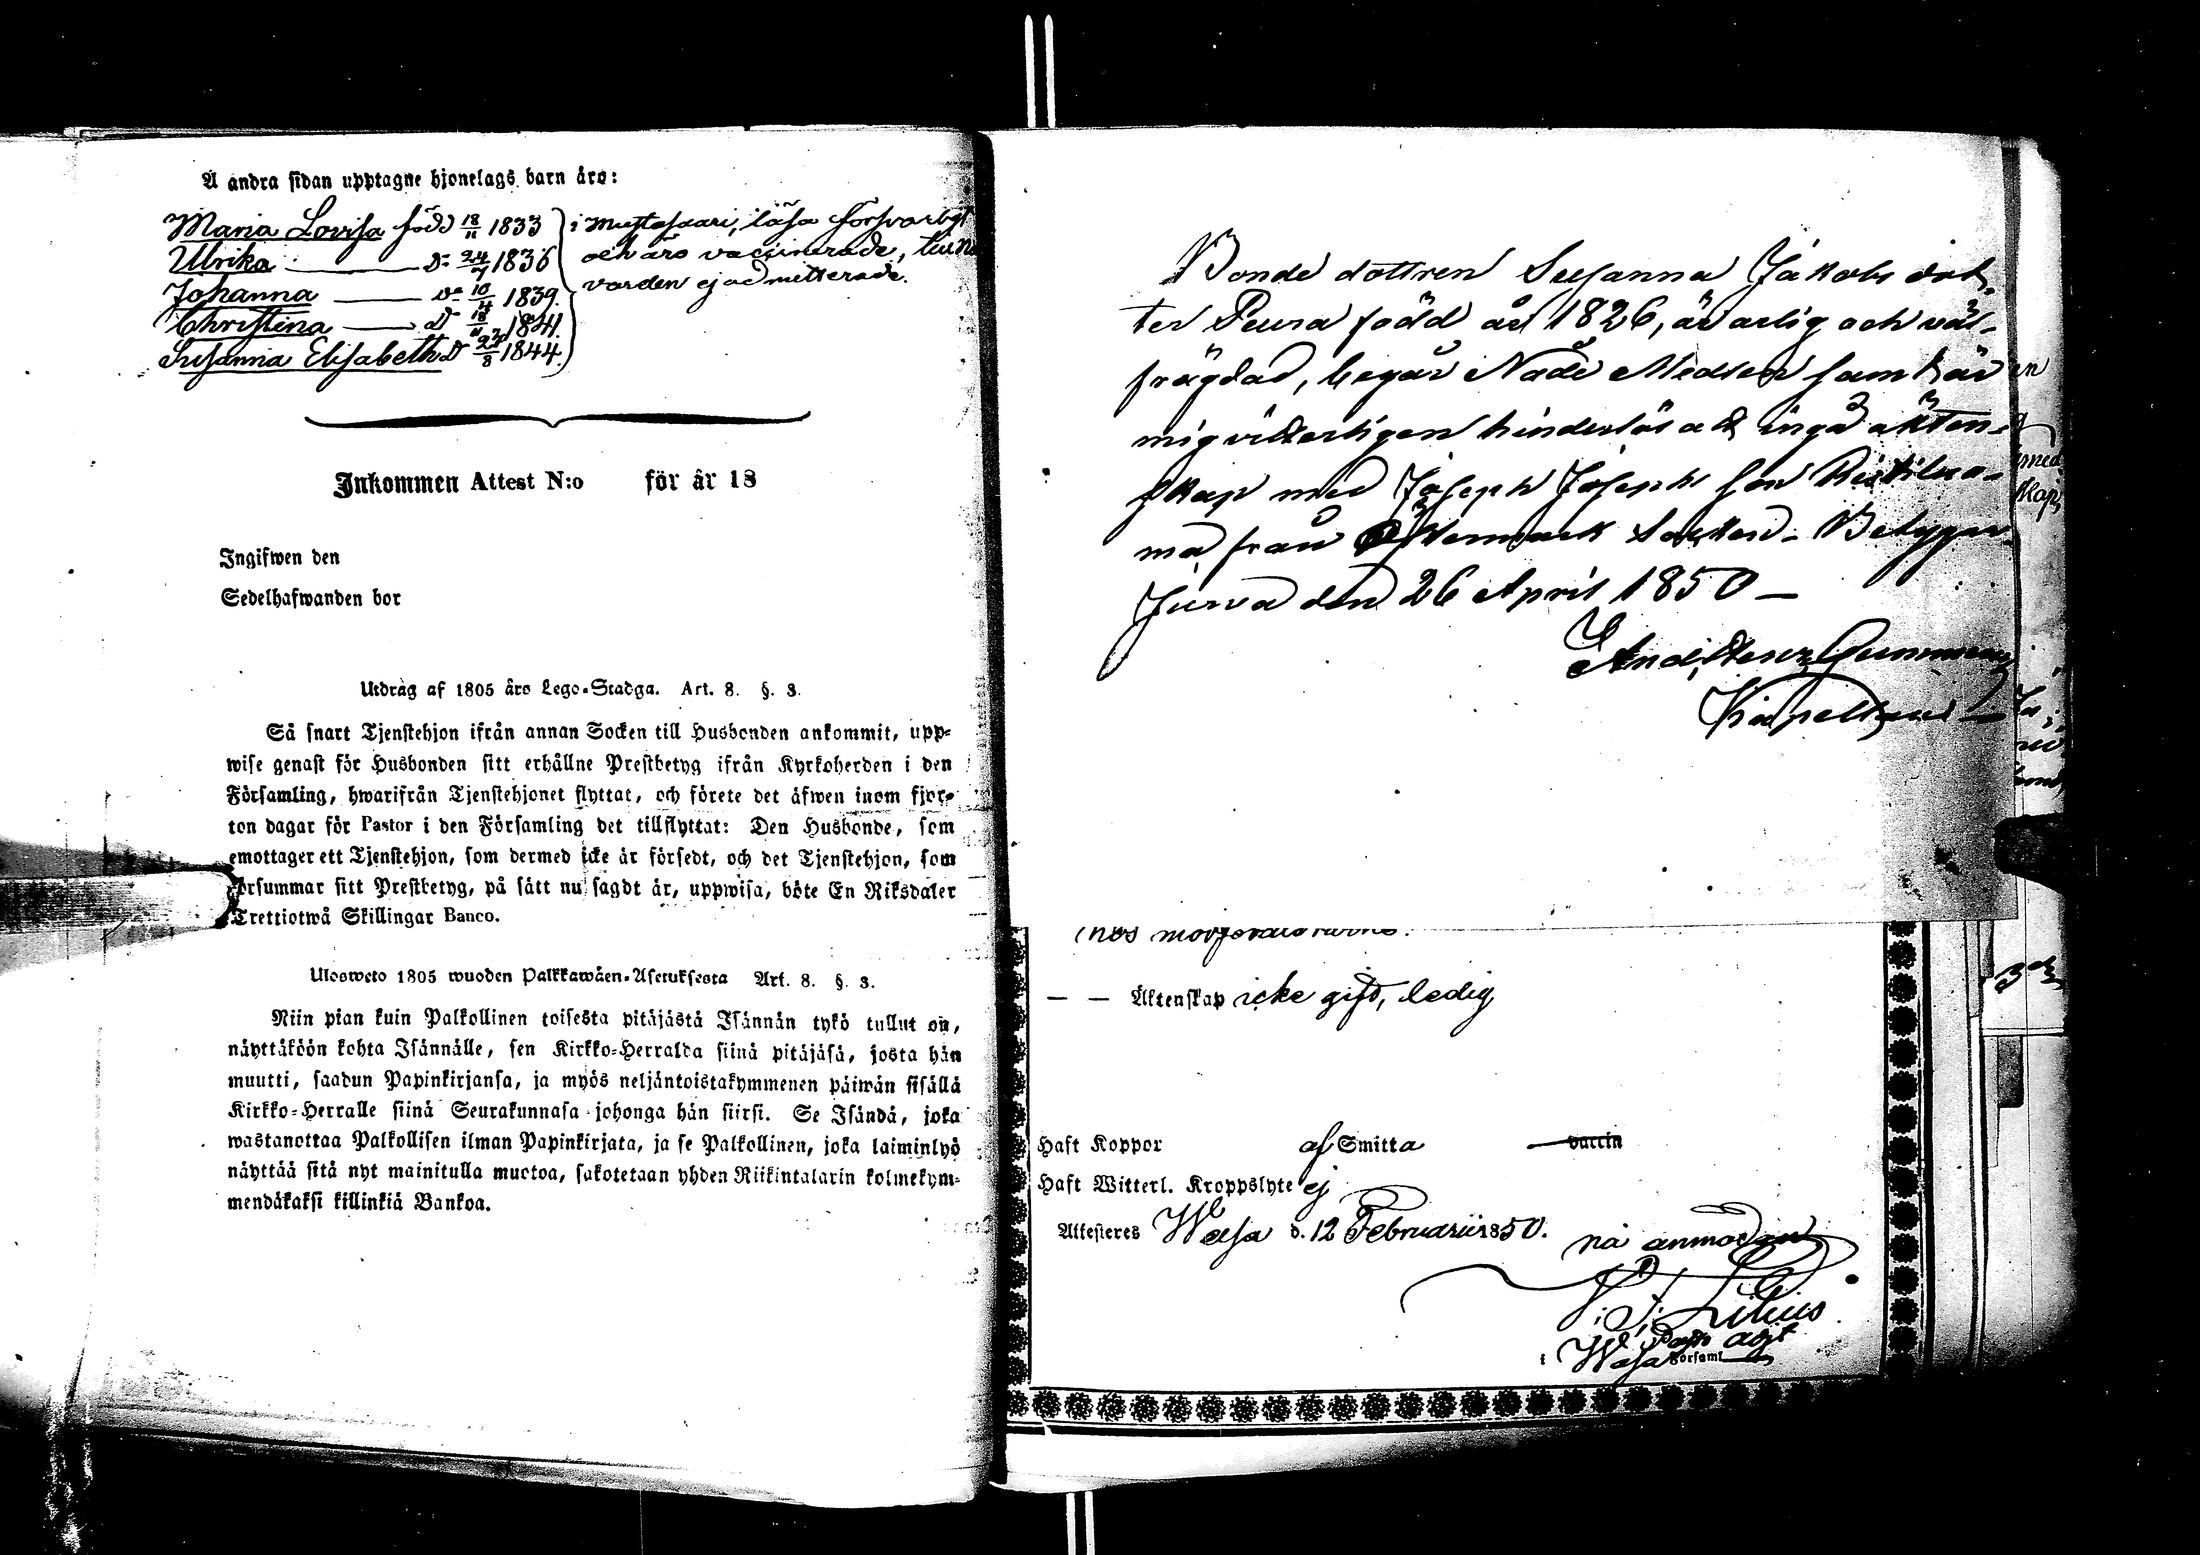 Å andra sidan upptagne hjonelags barn äro:
Maria Lovisa född 18/11 1833
Ulrika D:o 24/7 1836
Johanna D:o 10/4 1839.
Christina D:o 18/11 1841.
Susanna Elisabeth D:o 22/8 1844.
i Mustasaari, läsa försvarligt
och äro vaccinerade,
varden ej admitterade.
Inkommen Attest N:o för år 18
Ingifwen den
Sedelhafwanden bor
Utdrag af 1805 års Lego-Stadga. Art. 8. §. 3.
Så snart Tjenstehjon ifrån annan Socken till Husbonden ankommit, upp-
wise genast för Husbonden sitt erhållne Prestbetyg ifrån Kyrkoherden i den
Församling, hwarifrån Tjenstehjonet flyttat, och förete det äfwen inom fjor-
ton dagar för Pastor i den Församling det tillflyttat: Den Husbonde, som
emottager ett Tjenstehjon, som dermed icke är försedt, och det Tjenstehjon, som
försummar sitt Prestbetyg, på sätt nu sagdt är, uppwisa, böte En Riksdaler
Trettiotwå Skillingar Banco.
Ulosweto 1805 wuoden Palkkawäen-Asetuksesta Art. 8. §. 3.
Niin pian kuin Palkollinen toisesta pitäjästä Isännän tykö tullut on,
näyttäköön kohta Isännälle, sen Kirkko-Herralda siinä pitäjäsä, josta hän
muutti, saadun Papinkirjansa, ja myös neljäntoistakymmenen päiwän sisällä
Kirkko-Herralle siinä Seurakunnasa johonga hän siirsi. Se Isändä, joka
wastanottaa Palkollisen ilman Papinkirjata, ja se Palkollinen, joka laiminlyö
näyttää sitä nyt mainitulla muotoa, sakotetaan yhden Riikintalarin kolmekym-
mendäkaksi killinkiä Bankoa.
Bonde dottren Susanna Jakobs dot-
ter Peura född år 1826, är ärlig och väl-
frägdad, begår Nåde Medlen samt är
mig vitterligen hinderlös att ingå äkten-
skap med Joseph Josephs son Ristiluo-
ma från Östermark Socken. Betygar.
Jurva den 26 April 1850 —
Capellan
— — Äktenskap icke gift, ledig
Haft Koppor af Smitta vaccin
Haft Witterl. Kroppslyte ej
Attesteres Wasa d. 12 Februarii 1850.
på anmodan
Lilius
Past. adjt
i Wasa Församl